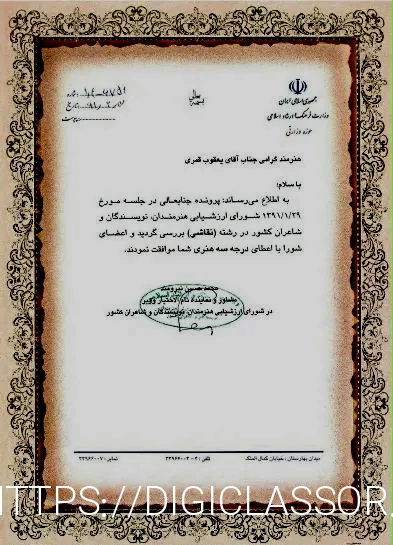 جمهوری اسلامی ایران
وزارت فرهنگ و ارشاد اسلامی
حوزه وزارتی
بسمه تعالی
شماره:
تاریخ:
پیوست
هنرمند گرامی جناب آقای یعقوب قمری
با سلام؛
به اطلاع می‌رساند: پرونده جنابعالی در جلسه مورخ
۱۳۹۱/۱/۲۹ شورای ارزشیابی هنرمندان، نویسندگان و
شاعران کشور در رشته (نقاشی) بررسی گردید و اعضای
شورا با اعطای درجه سه هنری شما موافقت نمودند.
محمدحسین نیرومند
مشاور و نماینده تام الاختیار وزیر
در شورای ارزشیابی هنرمندان، نویسندگان و شاعران کشور
میدان بهارستان، خیابان کمال الملک
تلفن: ۳-۳۳۹۶۶۰۰۲
نمابر: ۳۳۹۶۶۰۰۷
HTTPS://DIGICLASSOR.